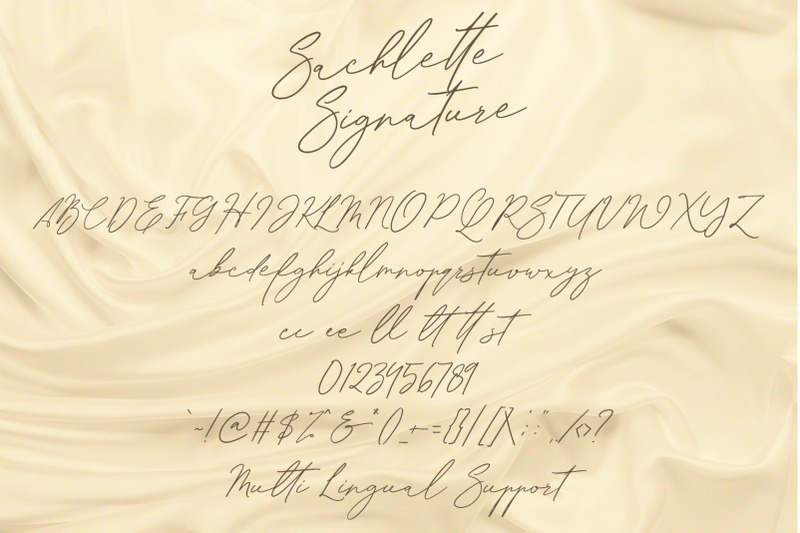 Sachlette
Signature
ABCDEFGHIJKLMNOPQRSTUVWXYZ
abcdefghijklmnopqrstuvwxyz
cc ee ll lt tt st
0123456789
`~!@#$%^&*()_+-={}|[]\;:'",./<>?
Multi Lingual Support